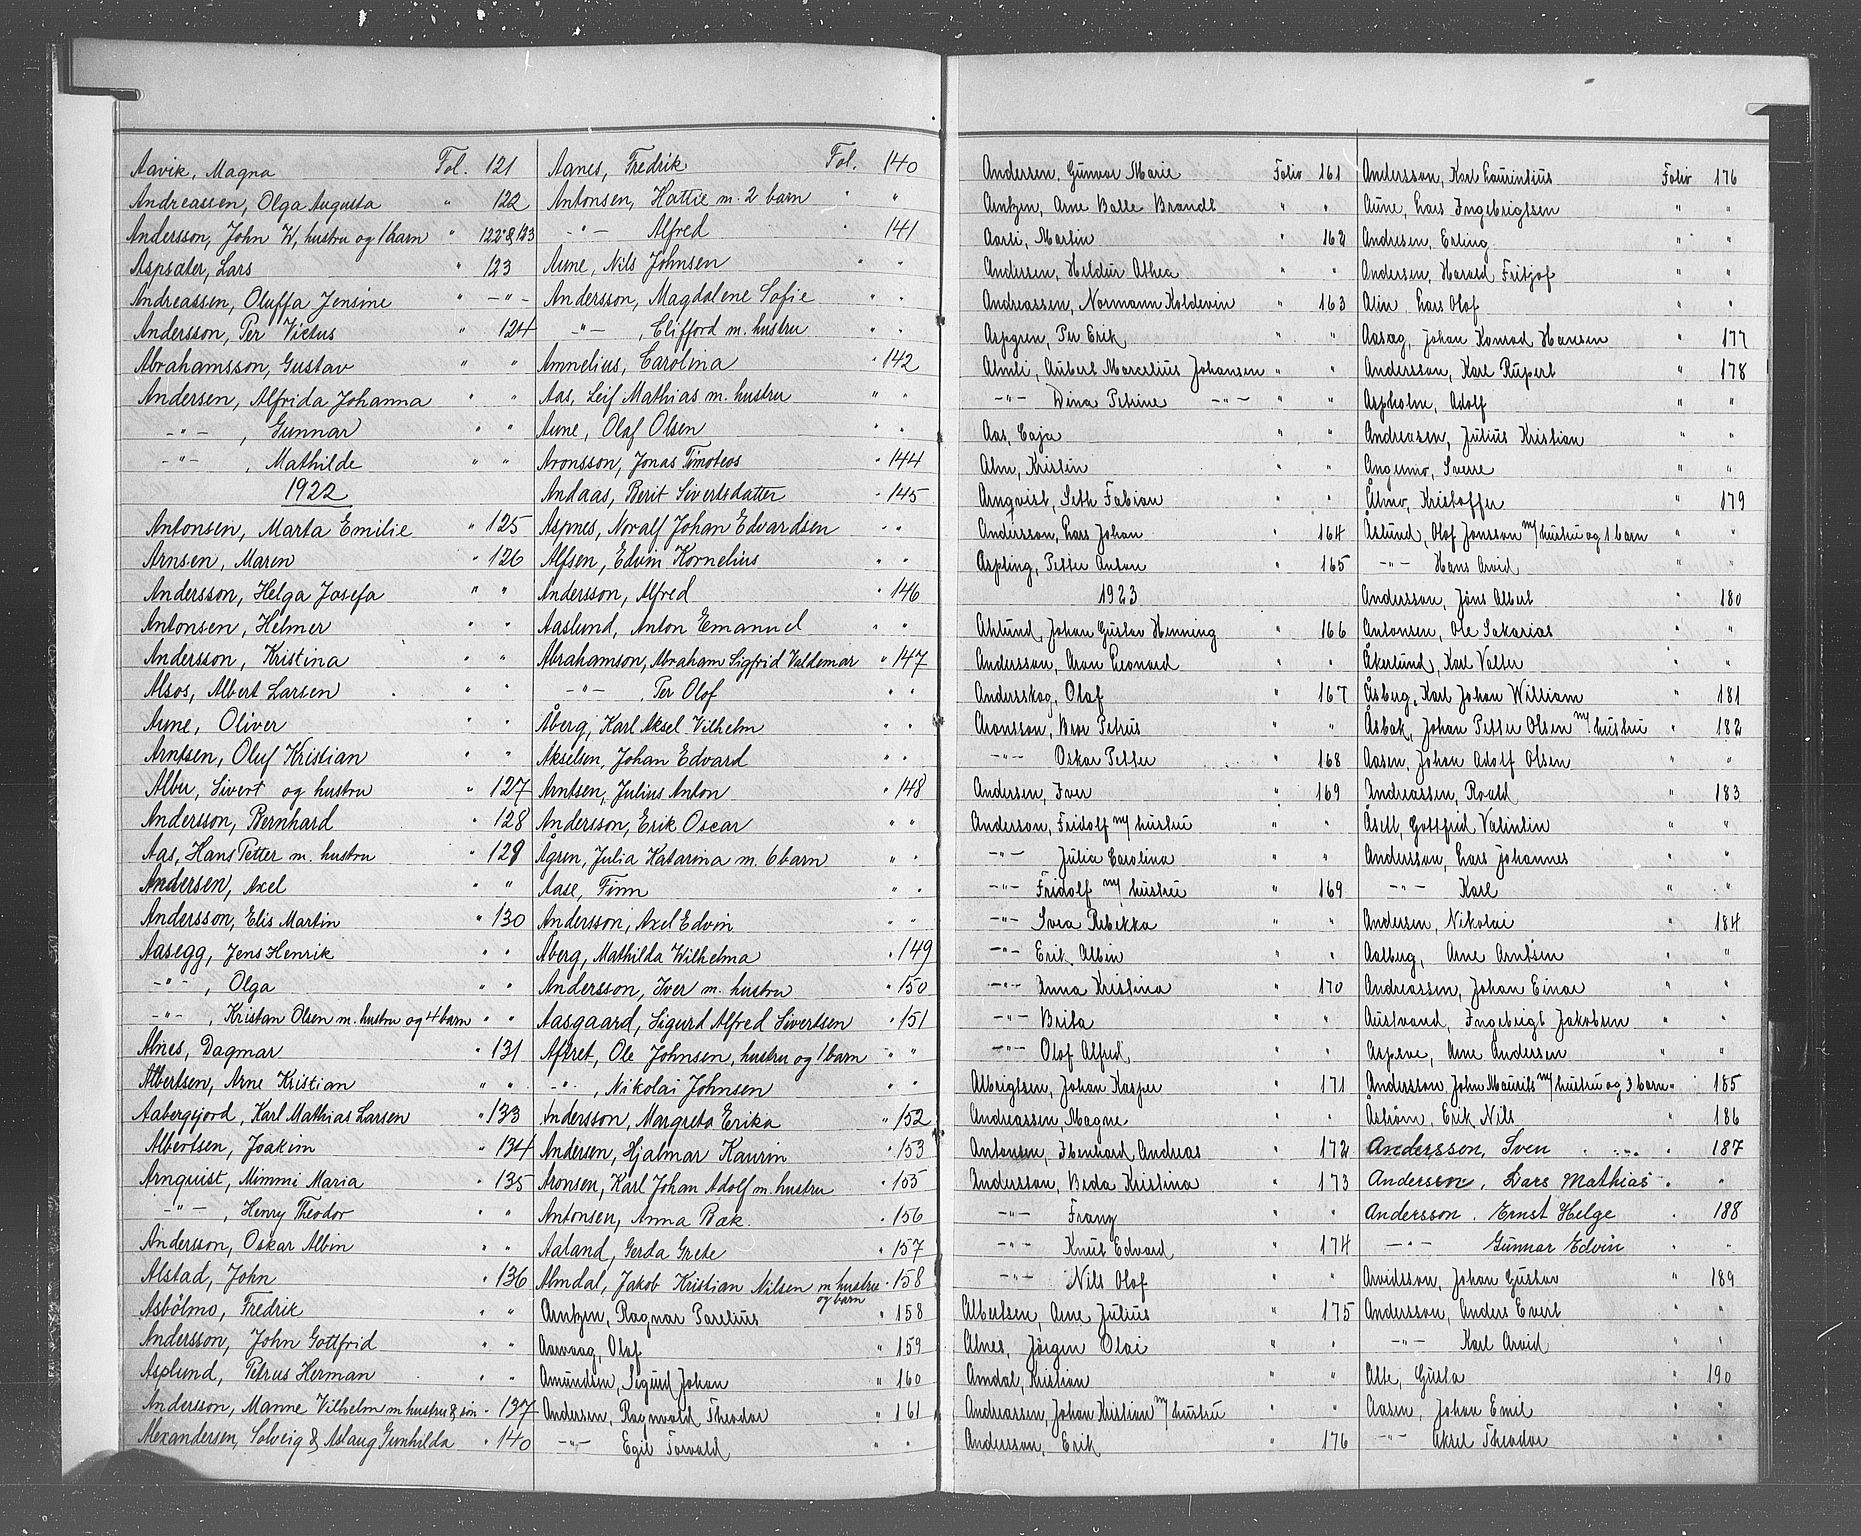 Aavik, Magna Fol. 121
Andreassen, Olga Augusta " 122
Andersson, John W, hustru og 1 barn " 122 & 123
Aspsæter, Lars " 123
Andreassen, Oluffa Jensine " -"-
Andersson, Per Victus " 124
Abrahamsson, Gustav " "
Andersen, Alfrida Johanna " "
-"- , Gunnar " "
-"- , Mathilde " "
1922
Antonsen, Marta Emilie " 125
Arnsen, Maren " 126
Andersson, Helga Josefa " "
Antonsen, Helmer " "
Andersson, Kristina " "
Alsos, Albert Larsen " "
Aune, Oliver " "
Arntsen, Oluf Kristian " "
Albu, Sivert og hustru " 127
Andersson, Bernhard " 128
Aas, Hans Petter m. hustru " 129
Andersen, Axel " "
Andersson, Elis Martin " 130
Aasegg, Jens Henrik " "
-"- , Olga " "
-"- , Kristan Olsen m. hustru og 4 barn " "
Alnes, Dagmar " 131
Albertsen, Arne Kristian " "
Aabergfjord, Karl Mathias Larsen " 133
Albertsen, Joakim " 134
Arnquist, Mimmi Maria " 135
-"- , Henry Theodor " "
Andersson, Oskar Albin " "
Alstad, John " 136
Asbölmo, Fredrik " "
Andersson, John Gottfrid " "
Asplund, Petrus Herman " "
Andersson, Manne Vilhelm m hustru & sön " 137
Alexandersen, Solveig & Aslaug Gunhilda " 140
Aanes, Fredrik Fol. 140
Antonsen, Hattie m. 2 barn " "
-"- Alfred " 141
Aune, Nils Johnsen " "
Andersson, Magdalene Sofie " "
-"- , Clifford m. hustru " "
Amnelius, Carolina " 142
Aas, Leif Mathias m. hustru " "
Aune, Olaf Olsen " "
Aronsson, Jonas Timoteos " 144
Andaas, Berit Sivertsdatter " 145
Aspnes, Noralf Johan Edvardsen " "
Alfsen, Edvin Kornelius " "
Andersson, Alfred " 146
Aaslund, Anton Emanuel " "
Abrahamson, Abraham Sigfrid Valdemar " 147
-"- , Per Olof " "
Åberg, Karl Aksel Vilhelm " "
Akselsen, Johan Edvard " "
Arntsen, Julius Anton " 148
Andersson, Erik Oscar " "
Ågren, Julia Katarina m. 6 barn " "
Aase, Finn " "
Andersson, Axel Edvin " "
Åberg, Mathilda Wilhelma " 149
Andersson, Iver m. hustru " 150
Aasgaard, Sigurd Alfred Sivertsen " 151
Aftret, Ole Johnsen, hustru og 1 barn " "
-"- , Nikolai Johnsen " "
Andersson, Margreta Erika " 152
Andersen, Hjalmar Kaurin " 153
Aronsen, Karl Johan Adolf m. hustru " 155
Antonsen, Anna Bæk. " 156
Aaland, Gerda Grete " 157
Almdal, Jakob Kristian Nilsen m hustru og barn " 158
Arntzen, Ragnar Parelius " 158
Aarvaag, Olaf " 159
Amundsen, Sigurd Johan " 160
Andersen, Ragnvald Theodor " 161
-"- Egil Torvald " "
Andersen, Gunvor Marie Folio 161
Arntzen, Arne Balle Brandt " "
Aarli, Martin " 162
Andersen, Heldur Athea " "
Andreassen, Normann Koldevin " 163
Aspgren, Per Erik " "
Almli, Aubert Marcelius Johansen " "
-"- Dina Petrine -"- " "
Aas, Caja " "
Alm, Kristin " "
Arnqvist, Seth Fabian " "
Andersson, Lars Johan " 164
Aspling, Petter Anton " 165
1923
Ahlund, Johan Gustav Henning " 166
Andersson, Aron Leonard " "
Andersskog, Olaf " 167
Aronsson, Bror Petrus " "
-"- Oskar Petter " 168
Andersen, Iver " 169
Anderson, Fridolf m/ hustru " "
-"- Julia Carolina " "
-"- Fridolf m/ hustru " 169
-"- Svea Rebekka " "
-"- Erik Albin " "
-"- Anna Kristina " 170
-"- Brita " "
-"- Olof Alfred " "
Albrigtsen, Johan Kasper " 171
Andreassen, Magne " "
Antonsen, Ebenhard Andreas " 172
Andersson, Beda Kristina " 173
-"- Franz " "
-"- Knut Edvard " 174
-"- Nils Olof " "
Albertsen, Arne Julius " 175
Alnes, Jörgen Olai " "
Amdal, Kristian " "
Andreassen, Johan Kristian m/ hustru " "
Andersson, Erik " 176
Andersson, Karl Laurintius Folio 176
Aune, Lars Ingebrigtsen " "
Andresen, Erling " "
Andersen, Harald Fritjof " "
Alin, Lars Olof " "
Aasag, Johan Konrad Hansen " 177
Andersson, Karl Rupert " 178
Aspholm, Adolf " "
Andreasen, Julius Kristian " "
Angemo, Sverre " "
Älmo, Kristoffer " 179
Åslund, Olof Jonsson m/ hustru og 1 barn " "
-"- Hans Arvid " "
Andersson, Jöns Albert " 180
Antonsen, Ole Sakarias " "
Åkerlund, Karl Valter " "
Åsberg, Karl Johan William " 181
Åsbak, Johan Petter Olsen m/ hustru " 182
Aasen, Johan Adolf Olsen " "
Andreassen, Roald " 183
Åsell, Gottfrid Valintin " "
Andersson, Lars Johannes " "
-"- Karl " "
Andersen, Nikolai " 184
Aalberg, Arne Arntsen " "
Andreassen, Johan Einar " "
Austvand, Ingebrigt Jakobsen " "
Aspeve, Arne Andersen " "
Andersson, John Maurits m/ hustru og 3 barn " 185
Åström, Erik Nils " 186
Andersson, Sven " 187
Andersson, Lars Mathias " "
Andersson. Ernst Helge " 188
-"- Gunnar Edvin " "
Arvidsson, Johan Gustav " 189
Andersson, Anders Evert " "
-"- Karl Arvid " "
Alte, Gusta " 190
Aasen, Johan Emil " "
-"- Aksel Theodor " "